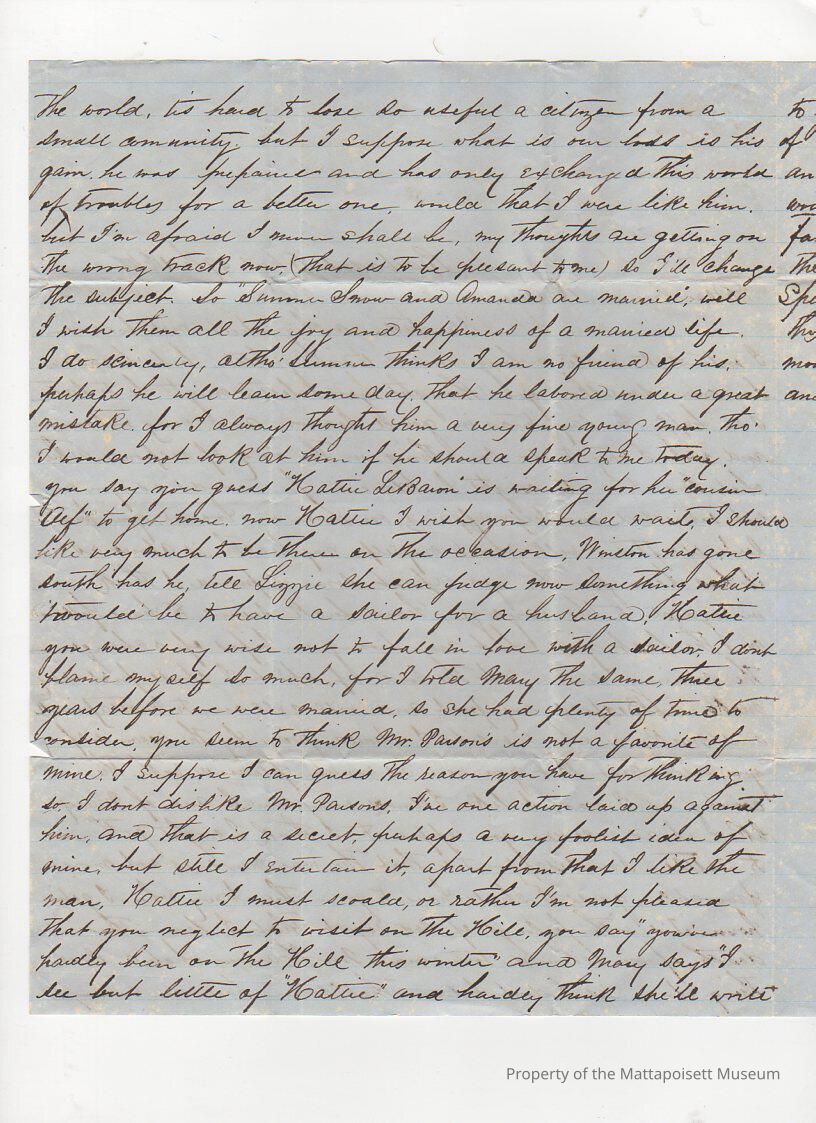 The world, tis hard to lose so useful a citizen from a
small comunity. but I suppose what is our loss is his
gain. he was prepaired and has only exchanged this world
of troubles for a better one, would that I were like him.
but I'm afraid I never shall be, my thoughts are getting on
the wrong track now, (that is to be plesant to me) so I'll change
the subject. So "Sumner Snow and Amanda are married", well
I wish them all the joy and happiness of a married life.
I do sincerely, altho' Sumner thinks I am no friend of his,
perhaps he will learn some day, that he labored under a great
mistake. for I always thought him a very fine young man, tho'
I would not look at him if he should speak to me today.
you say you guess "Hattie LeBaron" is waiting for her "cousin
Alf" to get home. now Hattie I wish you would wait, I should
like very much to be there on the occasion, Winston has gone
south has he, tell Lizzie she can judge now something what
'twould be to have a sailor for a husband, Hattie
you were very wise not to fall in love with a sailor, I dont
blame myself so much, for I told Mary the same, three
years before we were married, so she had plenty of time to
consider, you seem to think Mr. Parsons is not a favorite of
mine. I suppose I can guess the reason you have for thinking
so. I dont dislike Mr. Parsons, I've one action laid up against
him, and that is a secret, perhaps a very foolish idea of
mine, but still I entertain it, apart from that I like the
man, Hattie I must scoald, or rather I'm not pleased
that you neglect to visit on the Hill, you say "you've
hardly been on the Hill this winter" and Mary says "I
see but little of "Hattie" and hardly think she'll write
to
of
an
wou
fa
the
Spe
mou
and
Property of the Mattapoisett Museum